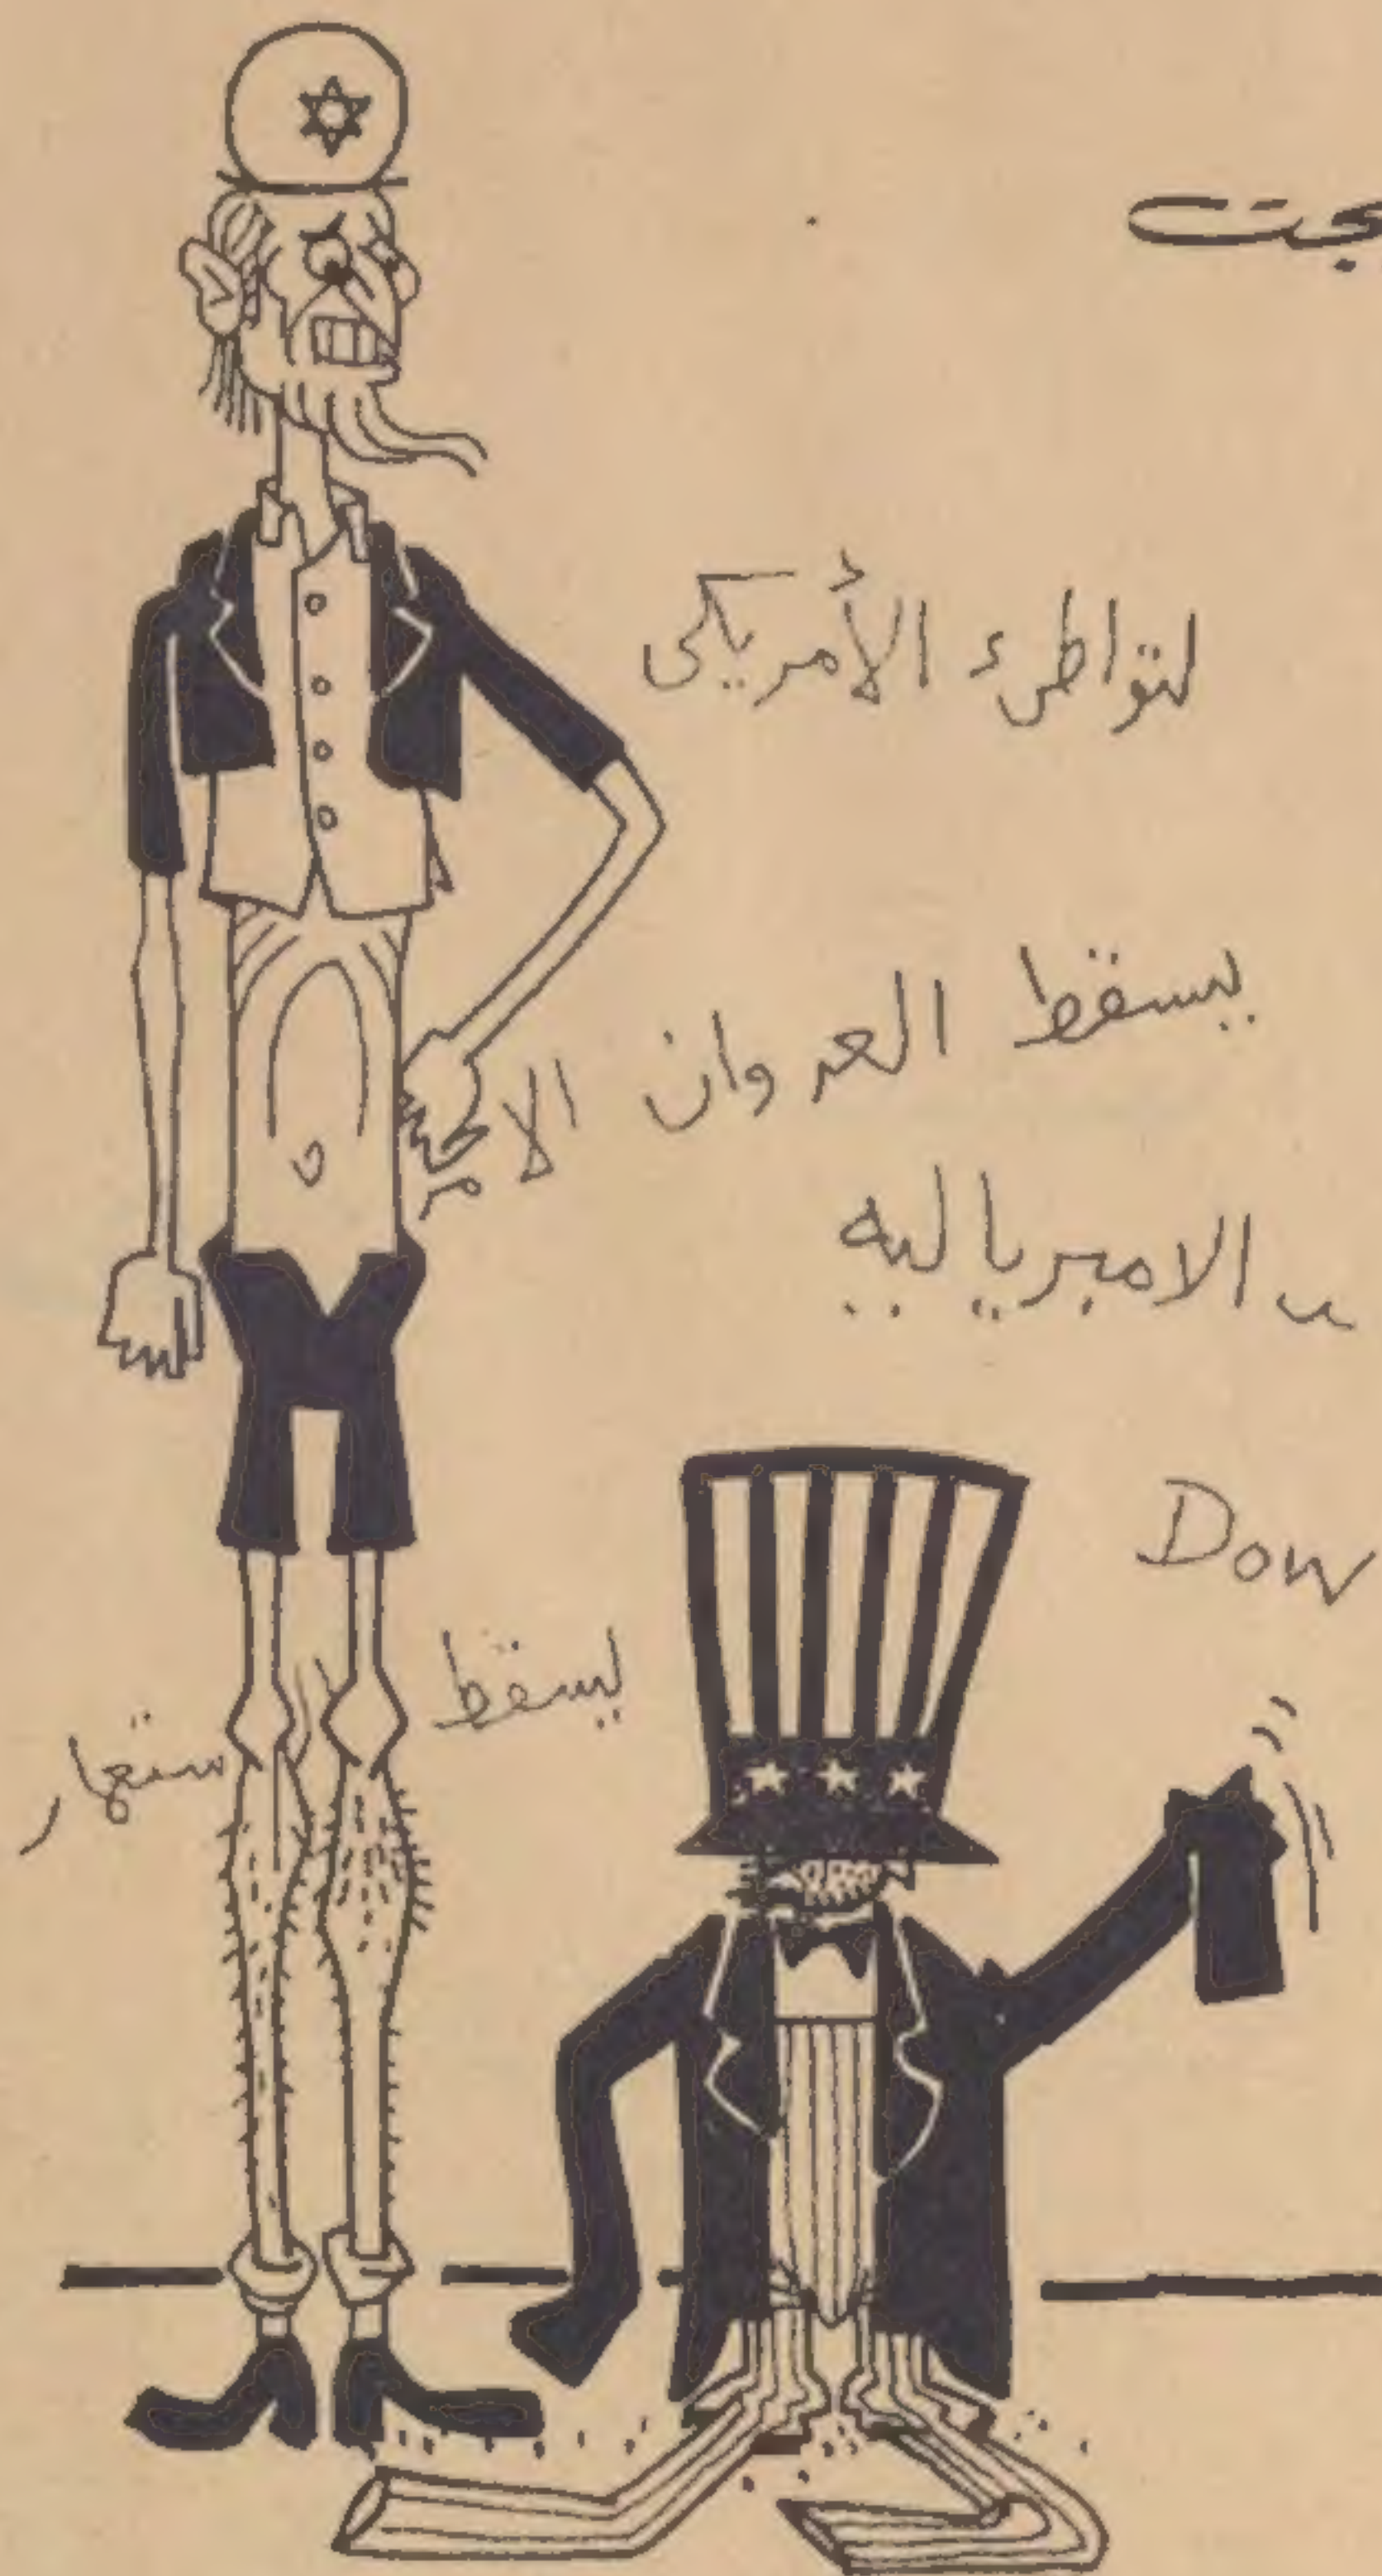 لتواطىء الأمريكى
يسقط العدوان الامر
الامبرياليه
Dow
يسقط
ستعمار